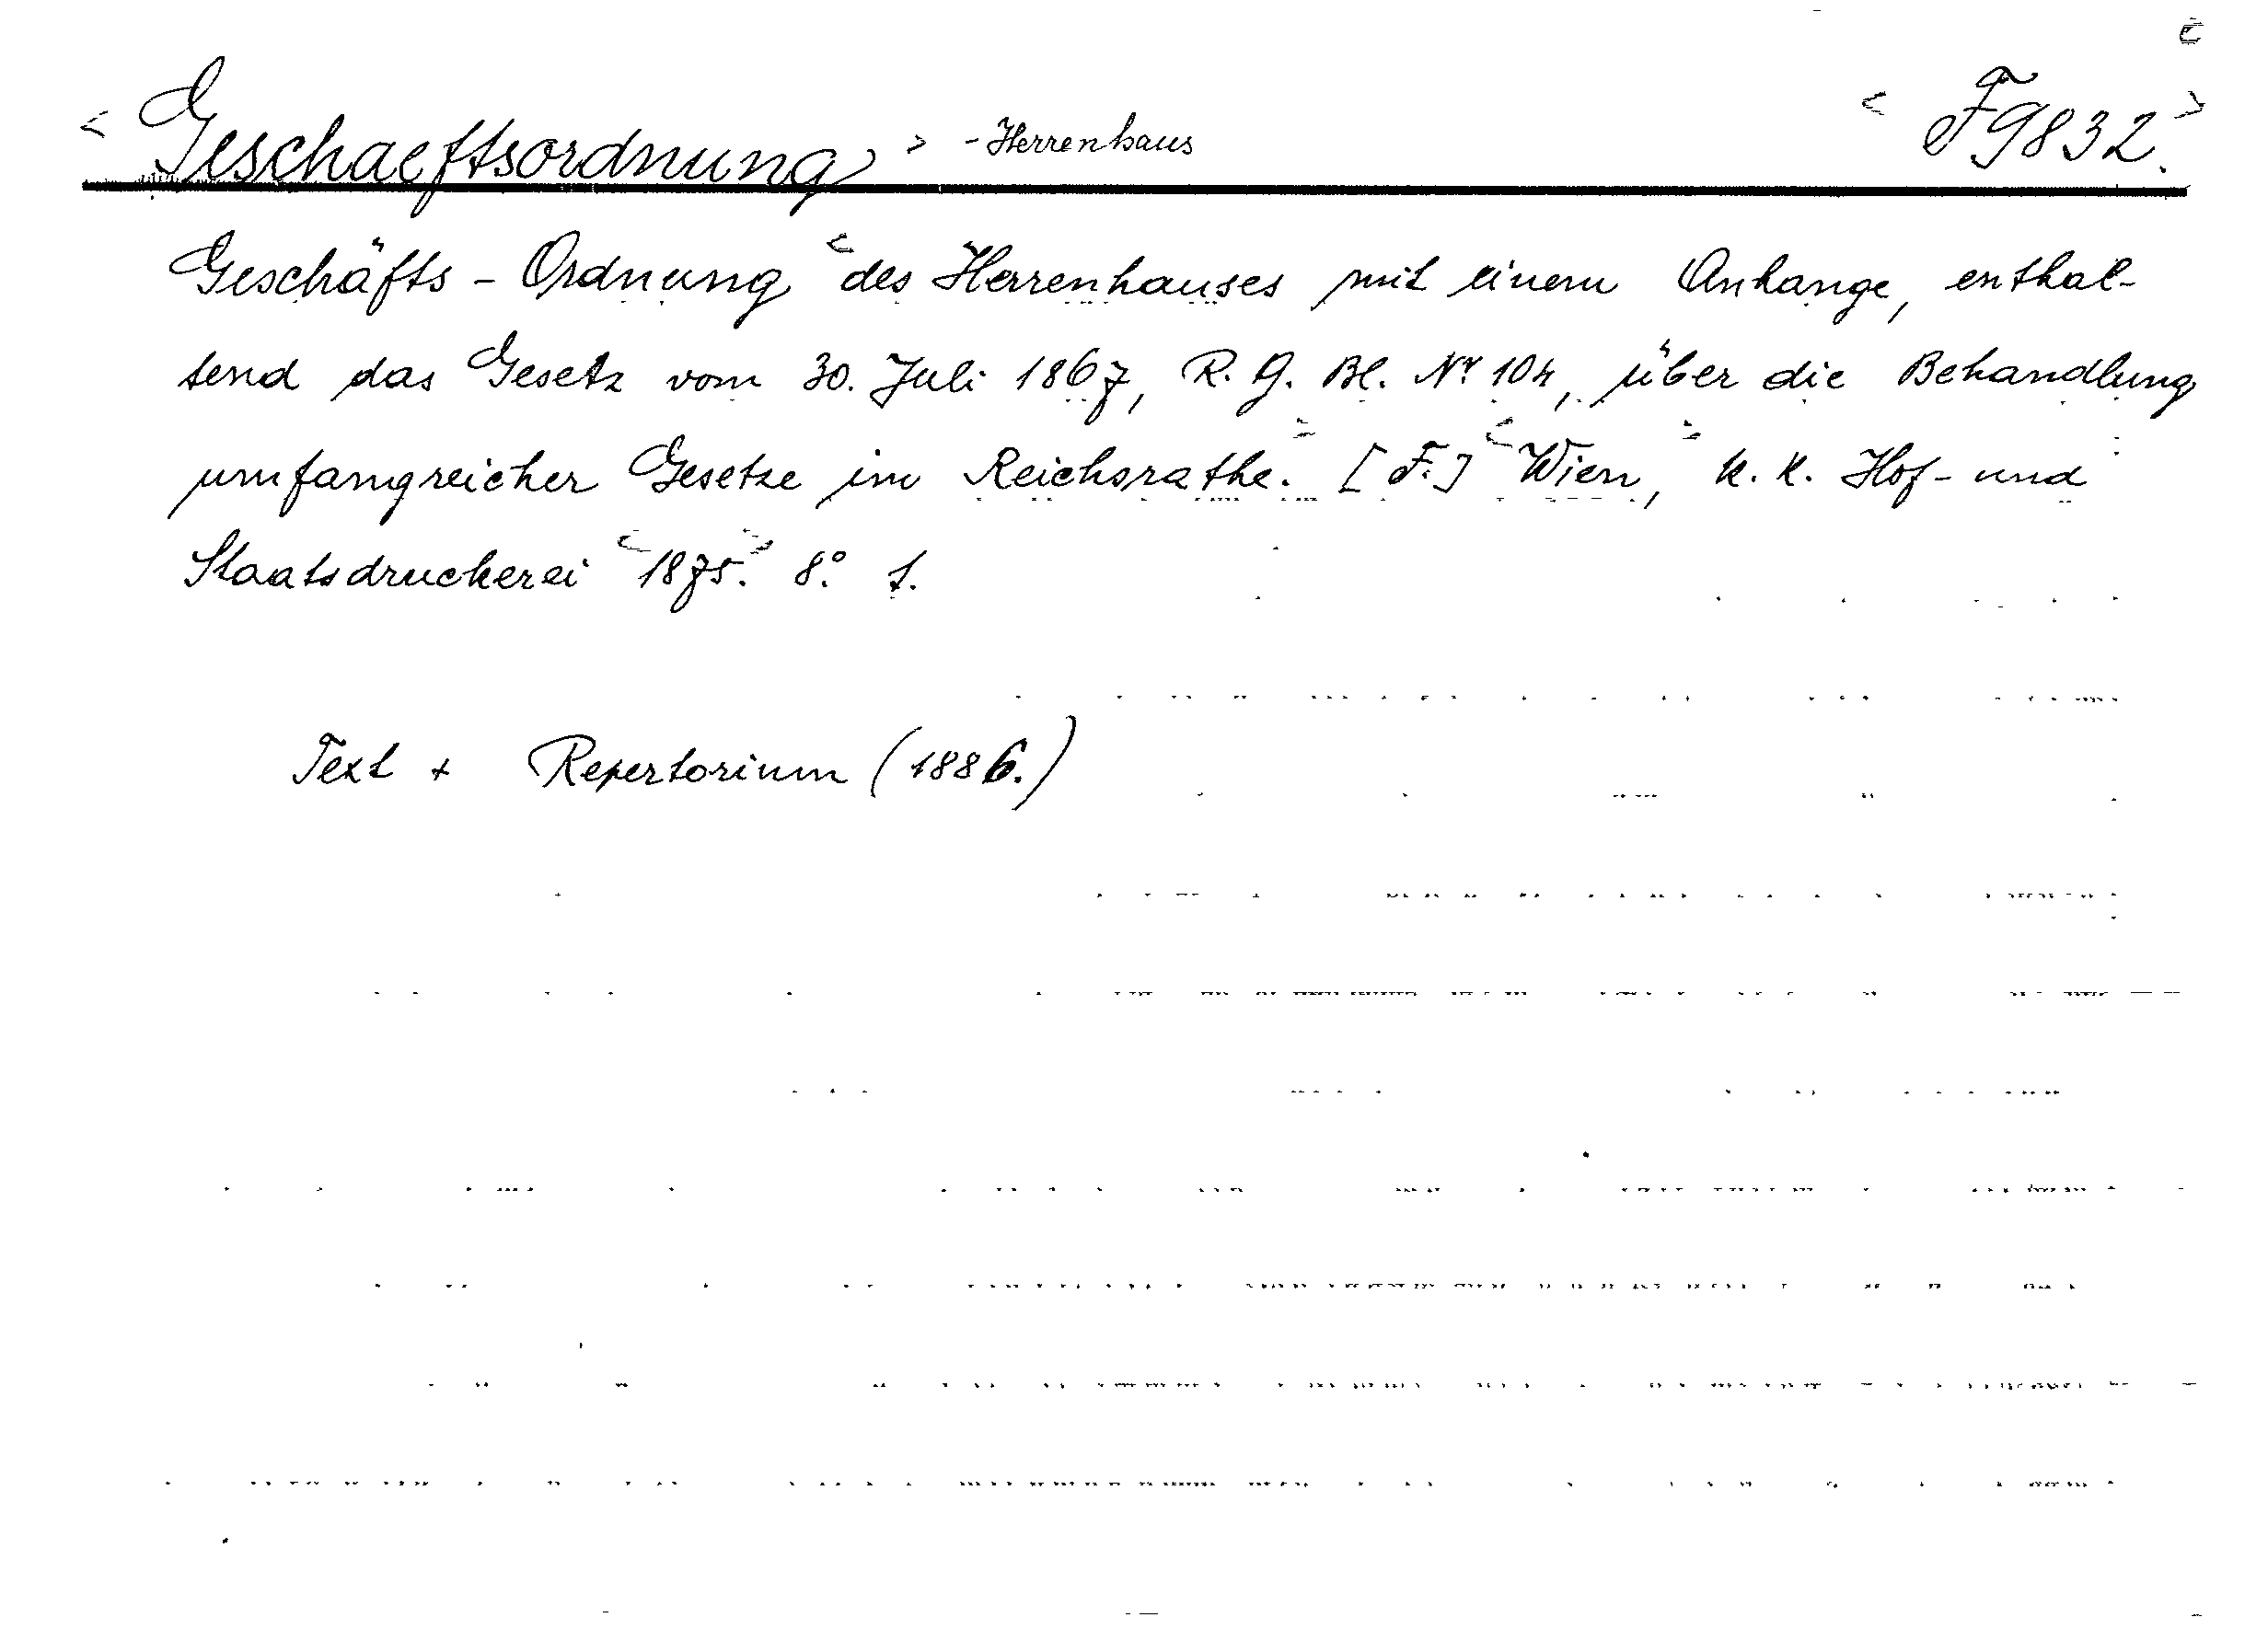 < Geschaeftsordnung > - Herrenhaus < F9832. >
Geschäfts - Ordnung < des Herrenhauses mit einem Anhange, enthal-
tend das Gesetz vom 30. Juli 1867, R. G. Bl. Nr. 104, über die Behandlung
umfangreicher Gesetze im Reichsrathe. > [F.] < Wien, > k. k. Hof- und
Staatsdruckerei < 1875. > 8.° 1.
Text + Repertorium (1886.)